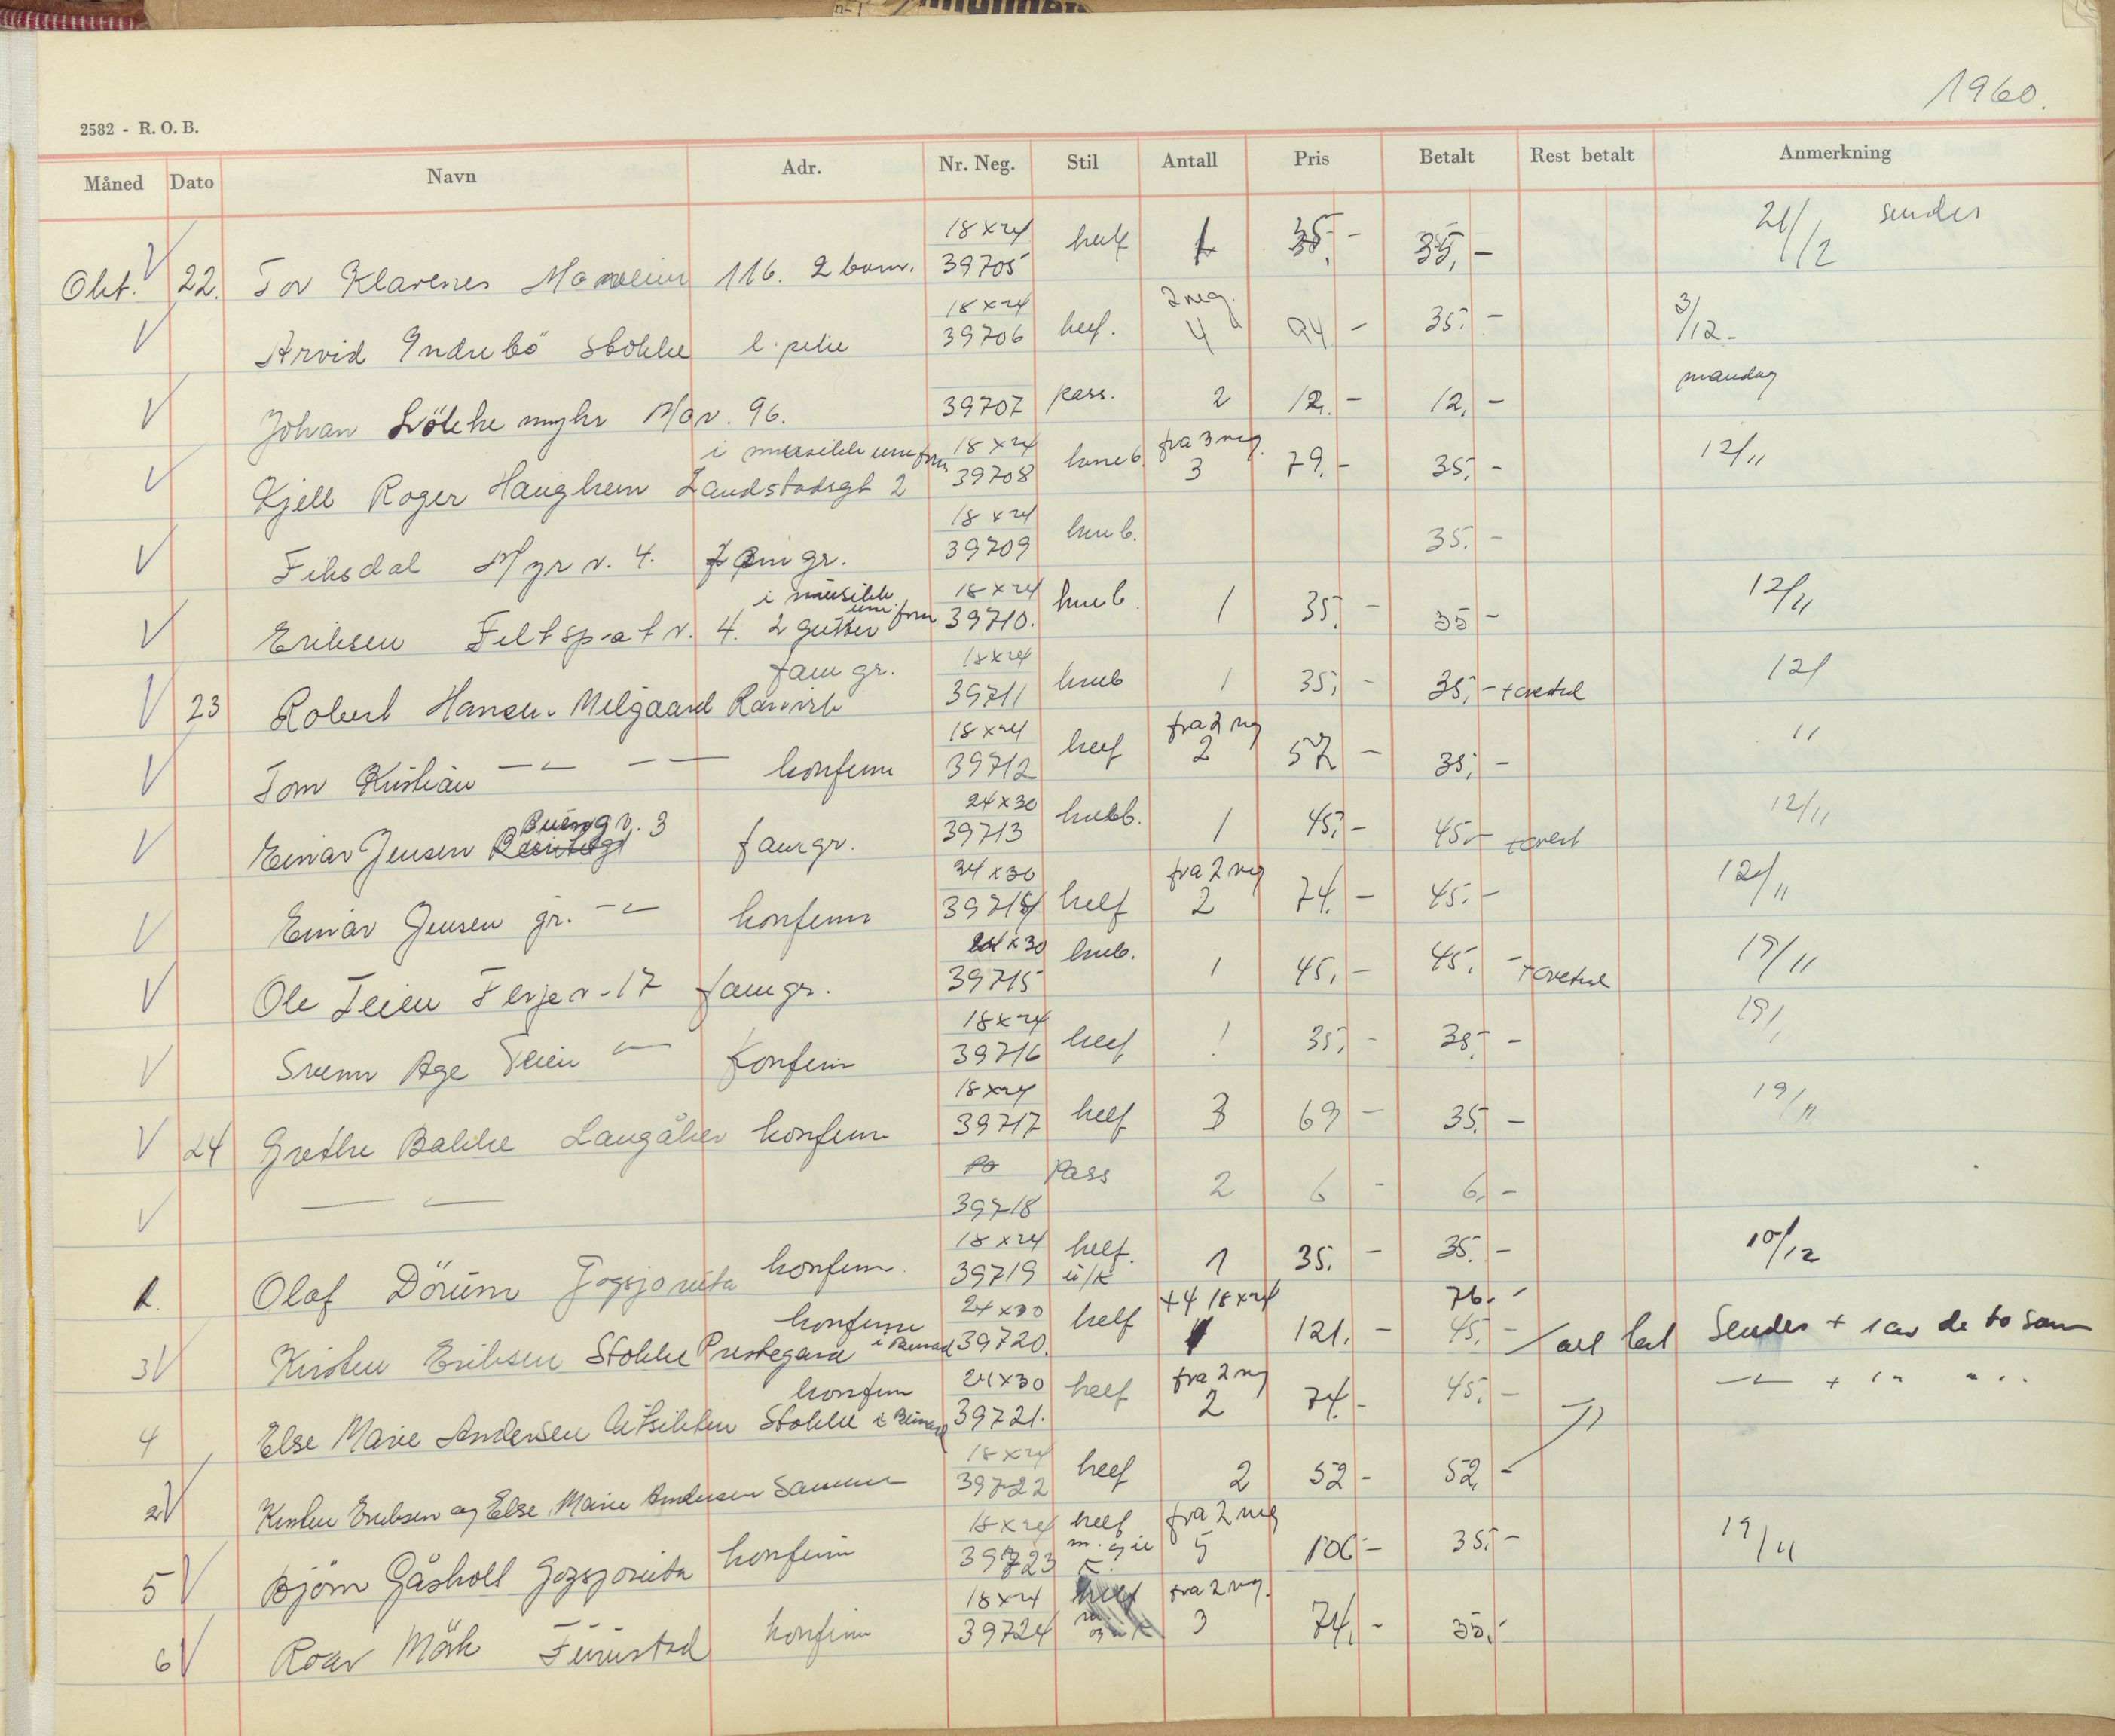 1960.
2582 - R. O. B.
Måned Dato Navn Adr. Nr. Neg. Stil Antall Pris Betalt Rest betalt Anmerkning
Okt. 22. Tor Klarenes 116. 2 barn. 18x24 39705 helf 1 35,- 35,- 21/12 sendes
Arvid Indrebö Stokke 18x24 39706 helf. 2 neg. 4 94 - 35. - 3/12-
Johan myhr 96. 39707 pass. 2 12. - 12, - mandag
Kjell Roger Haughem Landstadsgt 2 i musikk uniform 18x24 39708 kneb. fra 3 neg. 3 79.- 35, - 12/11
Fiksdal Myrv. 4. fam gr. 18x24 39709 kneb. 35. -
Eriksen Feltspatv. 4. 2 gutter i musikk uniform 18x24 39710. kneb 1 35. - 35 - 12/11
23 Robert Hansen Melgaard Ranvik fam gr. 18x24 39711 kneb 1 35, - 35, - 12/
Tom Kristian —"— —"— konfirm 18x24 39712 helf fra 2 neg 2 57 - 35, - "
Einar Jensen Buengv. 3 famgr. 24x30 39713 1 45,- 45.- 12/11
Einar Jensen jr. —"— konfirm 24x30 39714 helf fra 2 neg 2 74. - 45.- 12/11
Ole Teien Ferjev. 17 famgr. 24x30 39715 kneb. 1 45, - 45. - 19/11
Svenn Age Teien —"— Konfirm 18x24 39716 helf 1 35, - 35. - 19/
24 Grethe Bakke Langåker konfirm 18x24 39717 helf 3 69 - 35. - 19/11
—"— 39718 pass 2 6 - 6, -
Olaf Dörum Gogsjordeta konfirm. 18x24 39719 helf. u/k 1 35. - 35. - 10/12
3 Kirsten Eriksen Stokke Prestegard konfirm i Bunad 24x30 39720. helf +4 18x24 1 121. - 76. - 45. - sendes + 1 av de to sam
4 Else Marie Andersen Stokke konfirm i Bunad 24x30 39721. helf fra 2 neg 2 74. - 45. - —"— + 1 "
2 Kirsten Eriksen og Else Marie Andersen sammen 18x24 39722 helf 2 52 - 52, -
5 Björn Gåsholt Gogsjordeta konfirm 18x24 39723 helf fra 2 neg 5 106 - 35. - 19/11
6 Roar Mörk Furustad konfirm 18x24 39724 helf fra 2 neg. 3 74. - 35. -